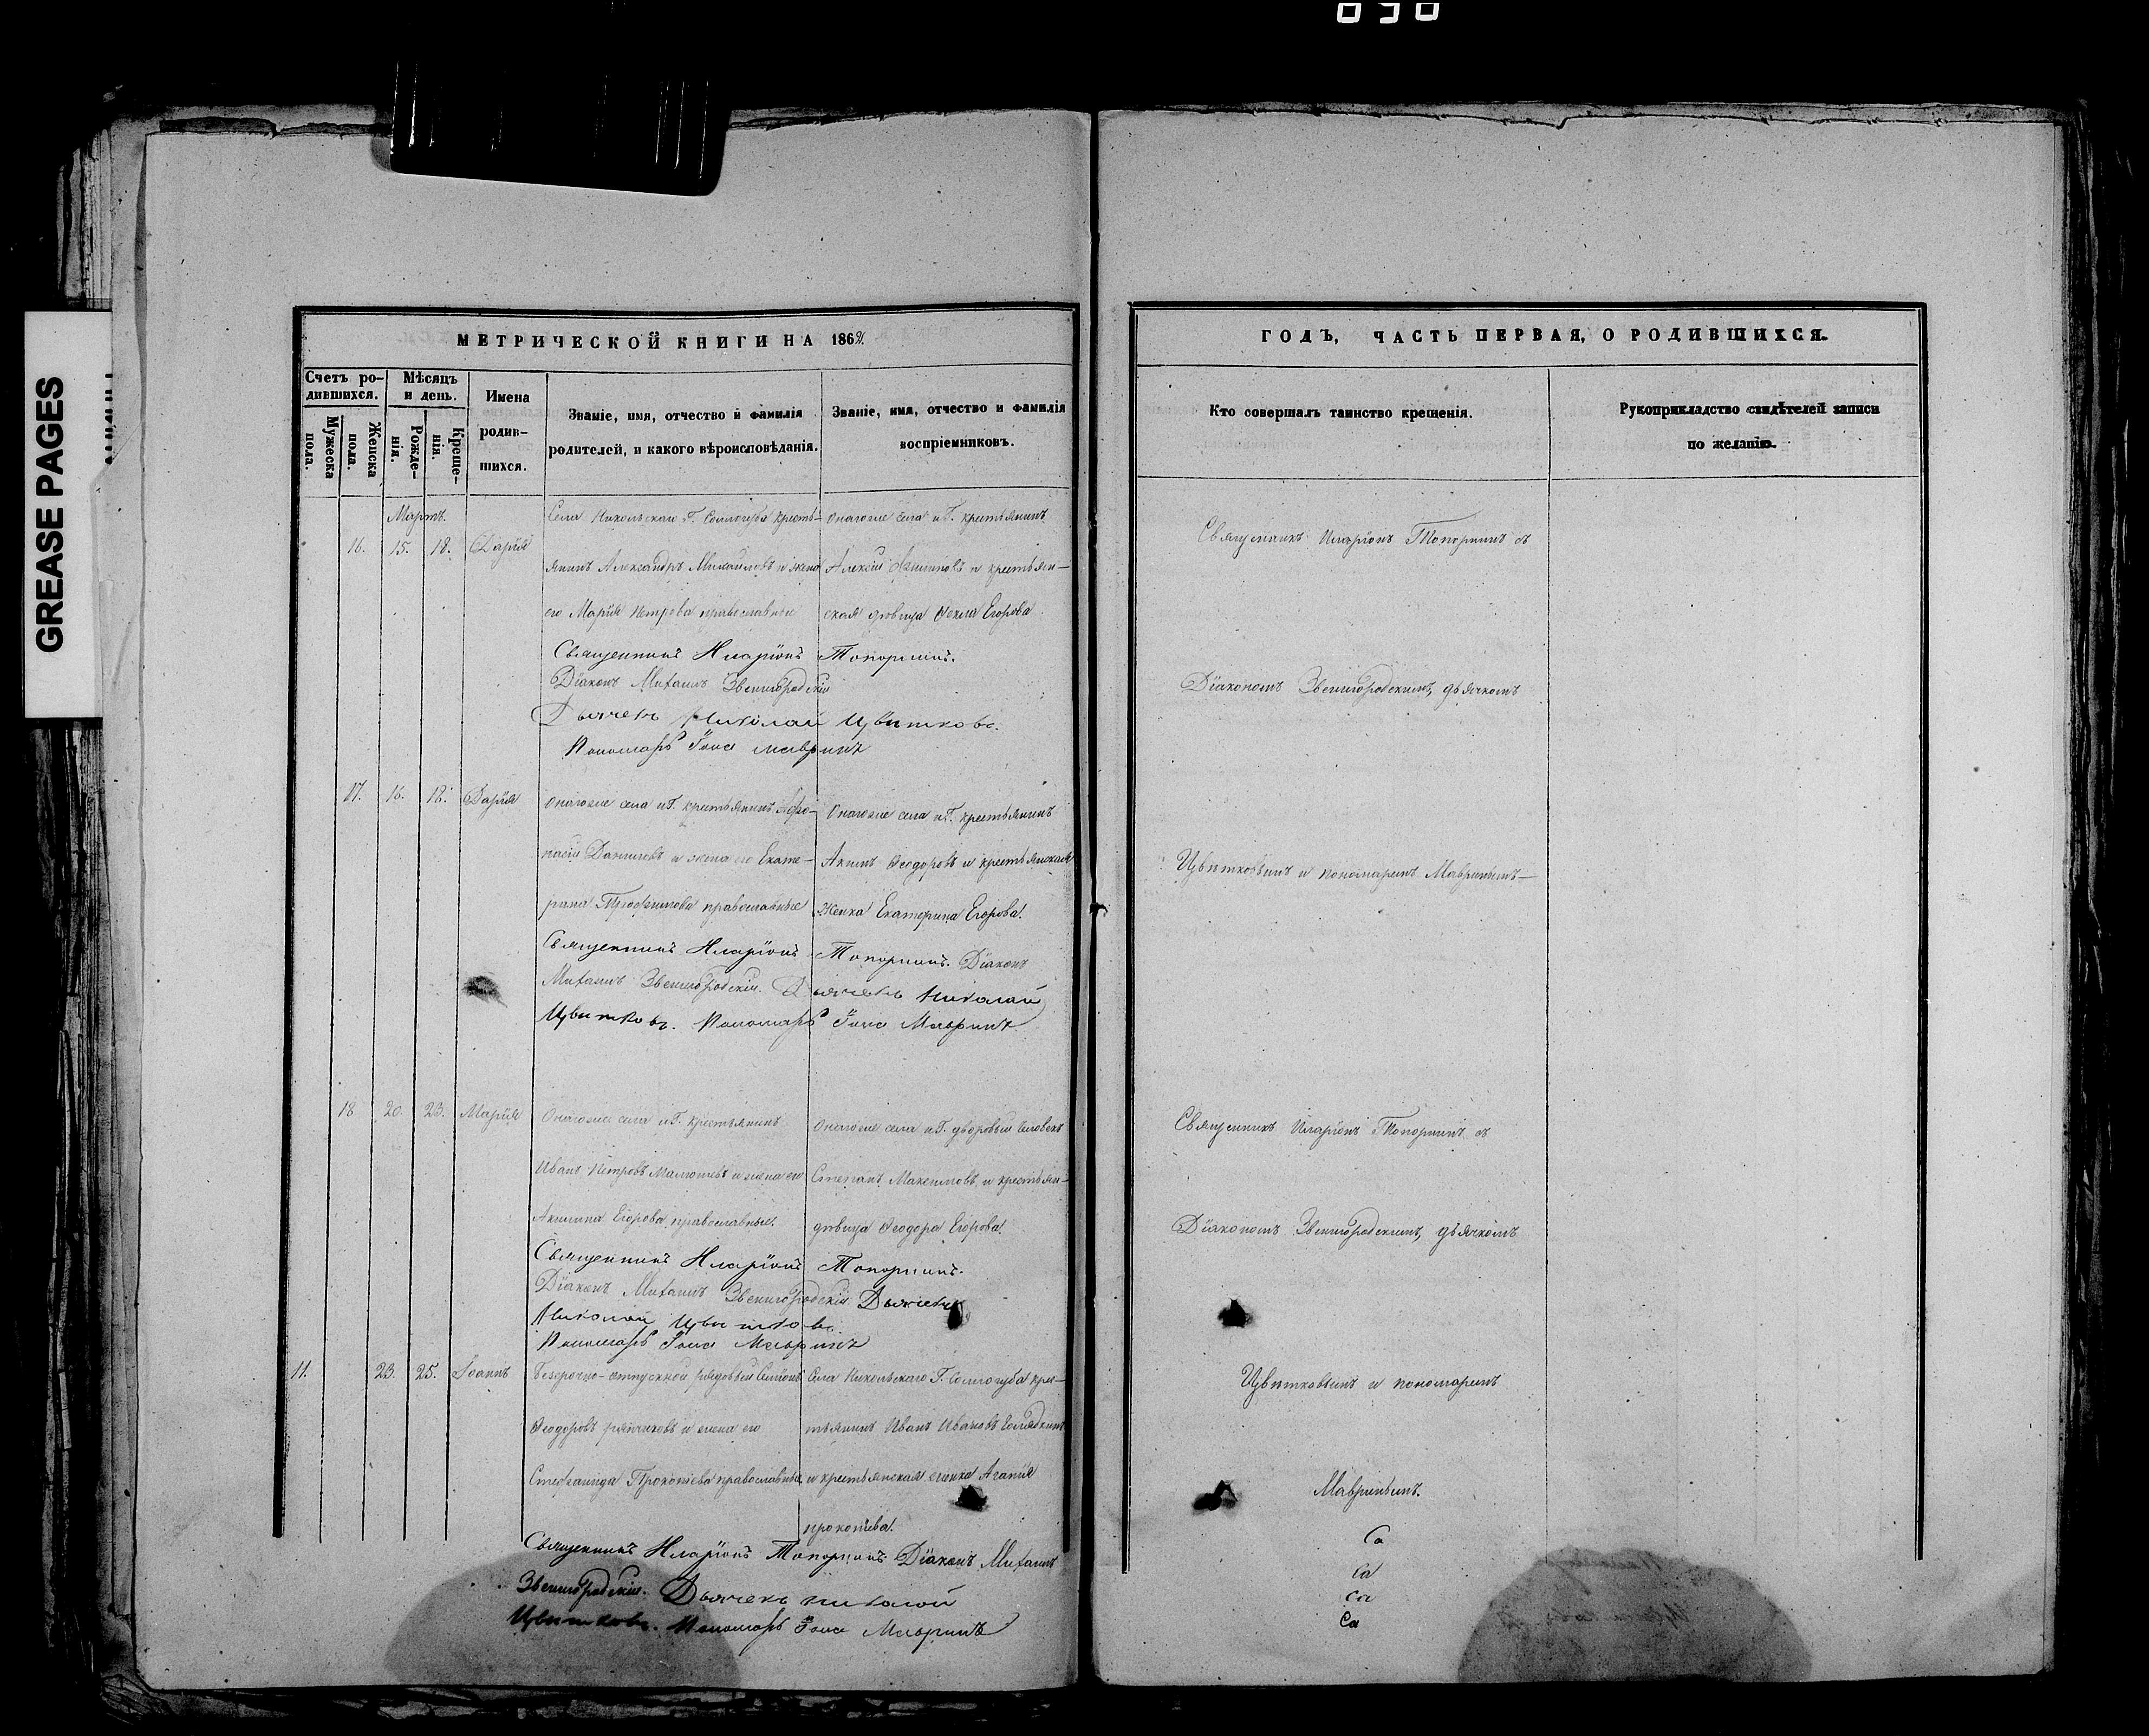 GREASE PAGES
МЕТРИЧЕСКОЙ КНИГИ НА 186
Счетъ ро-
дившихся.
Мѣсяцъ
и день.
Мужеска
пола.
Женска
пола.
Рожде-
нія.
Креще-
нія.
Имена
родив-
шихся.
Званіе, имя, отчество и фамилія
родителей, и какого вѣроисповѣданія.
Званіе, имя, отчество и фамилія
воспріемниковъ.
Мартъ.
16. 15. 18. Дарія
Села Никольскаго Г. Соллогуба кресть-
янинъ Александръ Михайловъ и жена
его Марія Петрова православные
Онагоже села и Г. крестьянинъ
Алексѣй Филиповъ и крестьян-
ская дѣвица Ѳекла Егорова
Священникъ Иларіонъ Топорнинъ.
Діаконъ Михаилъ Звенигородскій
Дьячекъ Николай Цвѣтковъ.
Пономарь Іона Мавринъ
17. 16. 18. Дарія
Онагоже села и Г. крестьянинъ Афо-
насій Даниловъ и жена его Екате-
рина Трофимова православные
Онагоже села и Г. крестьянинъ
Акимъ Ѳеодоровъ и крестьянская
женка Екатерина Егорова.
Священникъ Иларіонъ Топорнинъ. Діаконъ
Михаилъ Звенигородскій. Дьячекъ Николай
Цвѣтковъ. Пономарь Іона Мавринъ
18 20. 23. Марія
Онагоже села и Г. крестьянинъ
Иванъ Петровъ и жена его
Акилина Егорова православные.
Онагоже села и Г. дворовый человѣкъ
Степанъ Максимовъ и крестьян-
дѣвица Ѳеодора Егорова.
Священникъ Иларіонъ Топорнинъ.
Діаконъ Михаилъ Звенигородскій. Дьячекъ
Николай Цвѣтковъ.
Пономарь Іона Мавринъ
11. 23. 25. Іоаннъ
Безсрочно-отпускной рядовый Симіонъ
Ѳеодоровъ и жена его
Стефанида Прокопіева православные
Села Никольскаго Г. Соллогуба кре-
стьянинъ Иванъ Ивановъ
и крестьянская женка Агапія
Прокопіева.
Священникъ Иларіонъ Топорнинъ Діаконъ Михаилъ
Звенигородскій. Дьячекъ Николай
Цвѣтковъ. Пономарь Іона Мавринъ
ГОДЪ, ЧАСТЬ ПЕРВАЯ, О РОДИВШИХСЯ.
Кто совершалъ таинство крещенія.
Рукоприкладство свидѣтелей записи
по желанію.
Священникъ Иларіонъ Топорнинъ съ
Діакономъ Звенигородскимъ, дьячкомъ
Цвѣтковымъ и пономаремъ Мавринымъ
Священникъ Иларіонъ Топорнинъ съ
Діакономъ Звенигородскимъ, дьячкомъ
Цвѣтковымъ и пономаремъ
Мавринымъ.
Са
Са
Са
Са